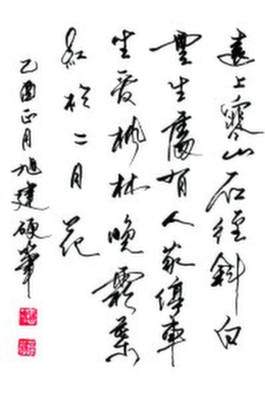 遠上寒山石徑斜白
雲生處有人家停車
坐愛楓林晚霜葉
紅於二月花
乙酉正月旭建硬筆